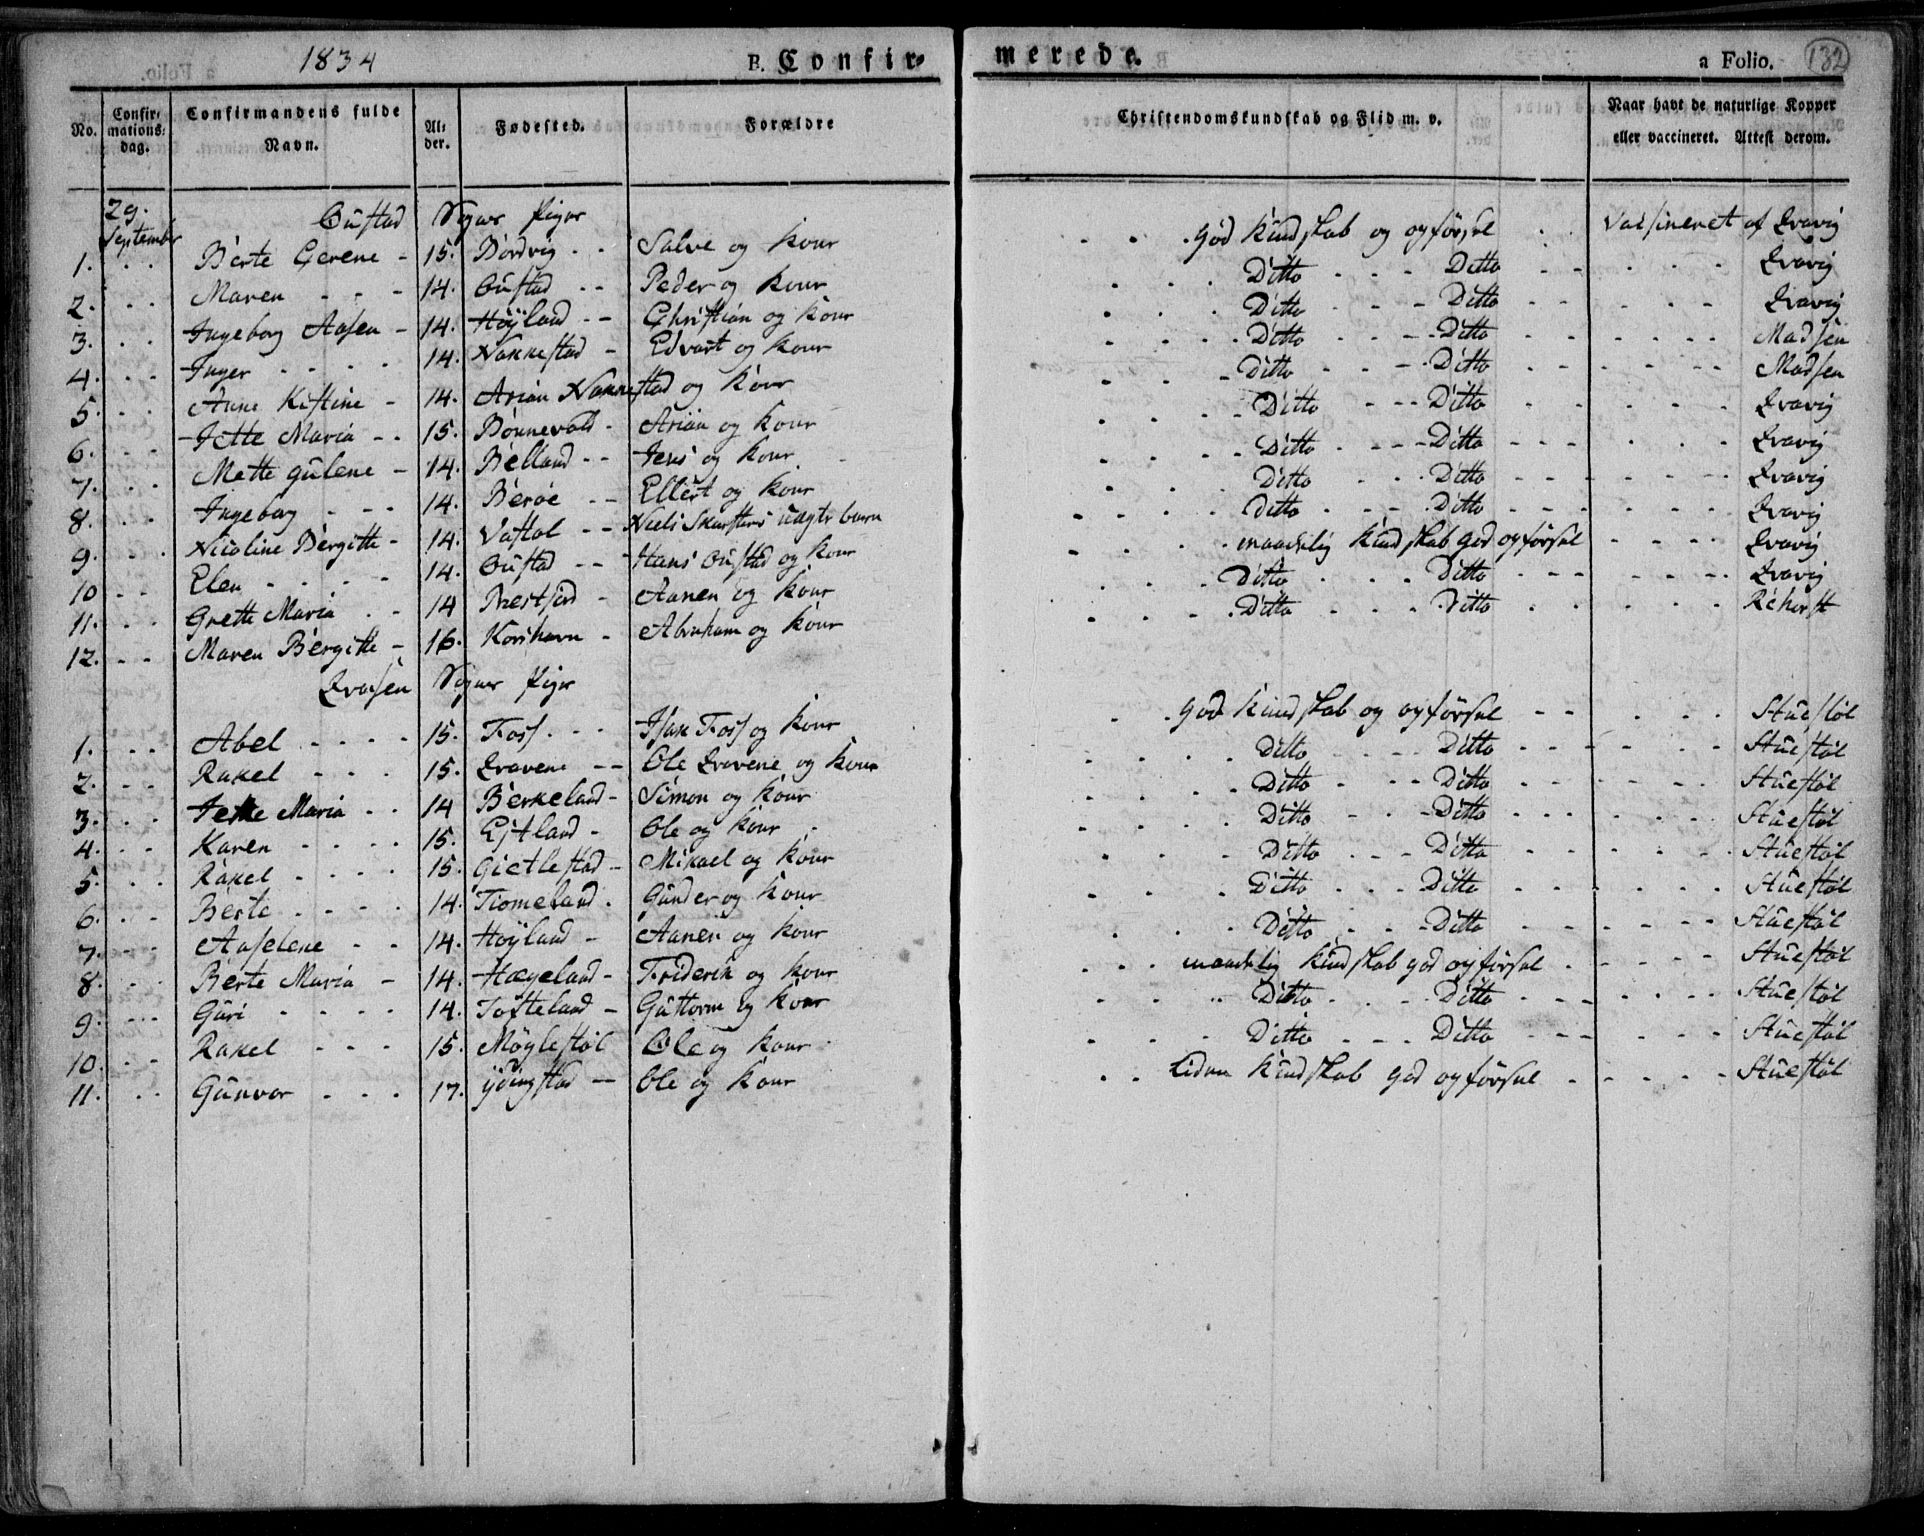 1834 B. Confir- merede. a Folio. 132
No. Confirmations-dag. Confirmandens fulde Navn. Alder. Fødested. Forældre Christendomskundskab og Flid m. v. Naar havt de naturlige Kopper eller vaccineret. Attest derom.
29. September
Oustad Sogns Piger
1. Berte Gerene - 15. Bordvig - - Salve og kour God kundskab og opførsel Vacsineret af Qvavig
2. Maren - - - 14. Oustad - - Peder og kour Ditto - - - Ditto Qvavig
3. Ingeborg Aasen - 14. Höÿland - - Christian og kour Ditto - - - Ditto Qvavig
4. Inger - - - - 14. Nakkestad - Edvart og kour Ditto - - - Ditto Madsen
5. Anne Kistine - 14. Arian Nakkestad og kour Ditto - - - Ditto Madsen
6. Jette Maria - - 15. Bonnevald - Arian og kour Ditto - - - Ditto Qvavig
7. Mette Gulene - 14. Belland - - Jens og kour Ditto - - - Ditto Qvavig
8. Ingeborg - - - 14. Beröe - - Ellert og kour Ditto - - - Ditto Qvavig
9. Nicoline Bergitte - 14. Vastöl - - Niels udgte barn Ditto - - - Ditto Qvavig
10. Elen - - - - 14. Oustad - - Hans Oustad og kour maadelig kundskab god opførsel Qvavig
11. Grette Maria - - 14 - Aanen og kour Ditto - - - Ditto Qvavig
12. Maren Bergitte - 16. Korshavn - Abraham og kour Ditto - - - Ditto
Sogns Piger
1. Abel - - - - 15. Foss - - - Isak Foss og kour God kundskab og opførsel Stuestöl
2. Rakel - - - 15. Qvavene - - Ole Qvavene og kour Ditto - - - Ditto Stuestöl
3. Maria - - 14 Berkeland - Simon og kour Ditto - - - Ditto Stuestöl
4. Karen - - - - 15. Eftland - Ole og kour Ditto - - - Ditto Stuestöl
5. Rakel - - - - 15. Gietlestad - Mikael og kour Ditto - - - Ditto Stuestöl
6. Berte - - - - 14. Tiomeland - Gunder og kour Ditto - - - Ditto Stuestöl
7. Aaselene - - 14. Höyland - Aanen og kour Ditto - - - Ditto Stuestöl
8. Berte Maria - 14. Hægeland - Friderik og kour maadelig kundskab god opførsel Stuestöl
9. Guri - - - - 14. Tofteland - Guttorm og kour Ditto - - - Ditto Stuestöl
10. Rakel - - - 15. Möylestöl Ole og kour Ditto - - - Ditto Stuestöl
11. Gunvor - - - 17. ÿdingstad - Ole og kour Liden kundskab god opførsel Stuestöl